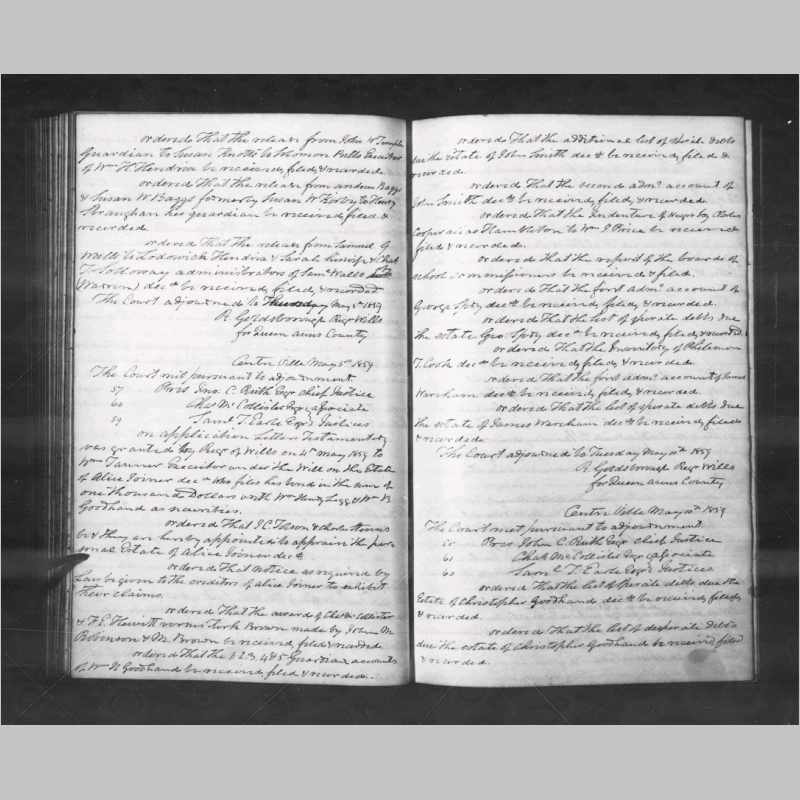 ordered That the release from John W
Guardian to Susan Knotts to Solomon Executor
of Wm H Hendrix be received, filed, & recorded
ordered That the release from andrew Baggs
& Susan W Baggs formerly Susan W Kirby to Henry
Straughan her guardian be received filed &
recorded
ordered That the release from Samuel G
Walls to Lodowick Hendrix & Sarah his wife &
T Holloway administrators of Saml Walls
Warren decd be received, filed, & recorded
The Court adjourned to Thursday May 5th 1859
R. Goldsborough Regr Wills
for Queen anns County
Centre Ville May 5th 1859
The Court met pursuant to adjournment.
57 Pres Jno. C. Ruth Esqr chief Justice
60 Chas McCollister Esqr associate
59 Saml T. Earle Esqr Justices
on application Letters Testamentary
was granted by Regr of Wills on 4th May 1859 to
Wm Tanner Executor under the Will on the Estate
of Alice Joiner decd who files his bond in the sum of
one thousand Dollars with Wm Henry Legg & Wm N
Goodhand as securities.
ordered That J C & Charles
be & they are hereby appointed to appraise the per
sonal Estate of Alice Joiner decd
ordered That notice as required by
Law be given to the creditors of Alice Joiner to exhibit
their claims.
ordered That the award of Chs McCollister
& F. E. Hewitt versus Brown made by John M
Robinson & M. Brown be received filed & recorded
ordered That the 1 2. 3. 4 & 5 Guardian accounts
of Wm N Goodhand be received, filed & recorded.
ordered That the additional list of debts
due the Estate of John Smith decd be received, filed &
recorded.
ordered That the second admn account of
John Smith decd be received, filed, & recorded.
ordered That the Indenture of Negro boy
Cooper alias Hambleton to Wm J Price be received
filed & recorded.
ordered That the report of the boards of
school commissioners be received & filed.
ordered That the first admn account of
George Spry decd be received, filed, & recorded.
ordered That the list of sperate debts due
the estate Geo. Spry decd be received, filed, & recorded.
ordered That the Inventory of Philemon
T. Cook decd be received, filed, & recorded
ordered That the first admn account of James
Warcham decd be received, filed, & recorded
ordered That the list of sperate debts due
the estate of James Warcham decd be received, filed
& recorded
The Court adjourned to Tuesday May 10th 1859
R. Goldsborough Regr Wills
for Queen anns County
Centre Ville May 10th 1859
The Court met pursuant to adjournment
58 Pres John C. Ruth Esqr chief Justice
61 Chas McCollister Esqr associate
60 Saml T. Earle Esqr Justices
ordered That the list of sperate debts due the
Estate of Christopher Goodhand decd be received, filed,
& recorded.
ordered That the list of desperate debts
due the estate of Christopher Goodhand be received filed
& recorded.